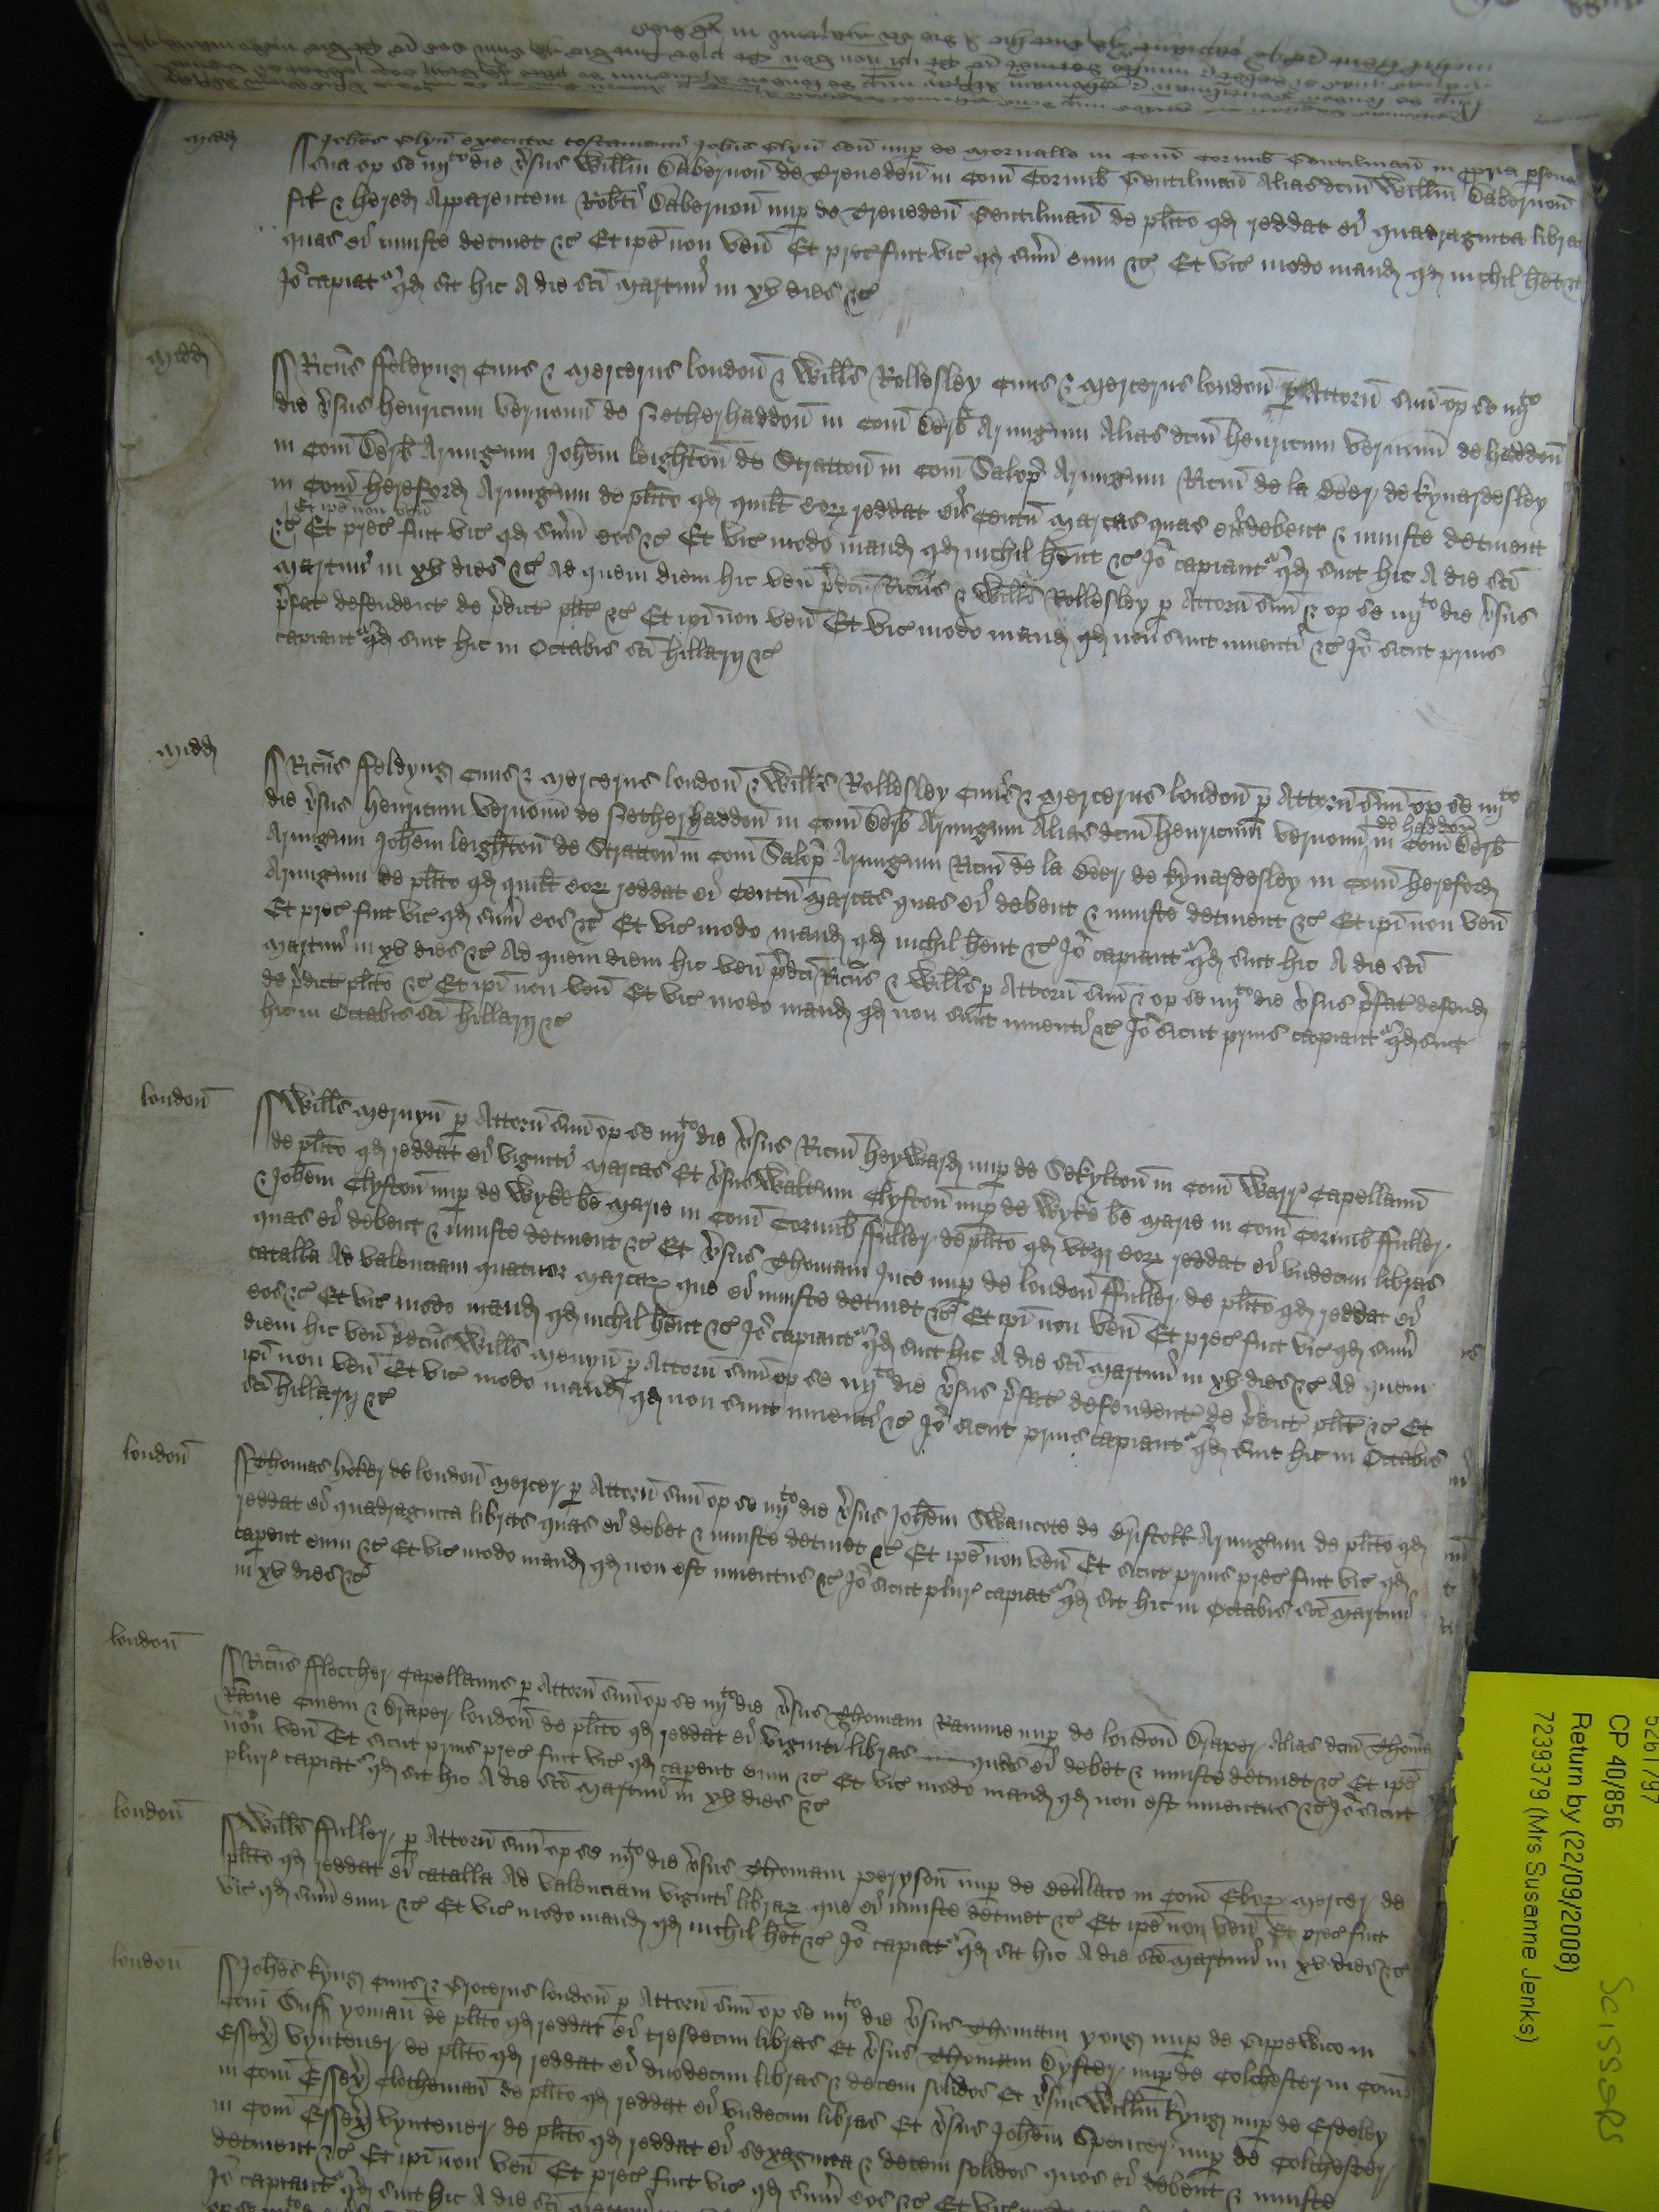 Midd
Joh̄es Elyn̄ executor testamenti Joh̄is Elyn̄ nup̄ de Morvalle in Com̄ Cornub̄ Gentilman̄ in p̄pria p̄sona
sua op̄ se iiijto die v̄sus Will̄m Dabernon̄ de Treneden̄ in Com̄ Cornub̄ Gentilman̄ Alias dc̄m Will̄m Dabernon̄
fil̄ & hered̄ Apparentem Rob̄ti Dabernon̄ nup̄ de Treneden̄ Gentilman̄ de pl̄ito qd̄ reddat ei quadraginta libras
quas ei iniuste detinet &c Et ip̄e non ven̄ Et prec̄ fuit vic̄ qd̄ sum̄ eum &c Et vic̄ modo mand̄ qd̄ nichil h̄et &c
Jō capiat̄ qd̄ sit hic A die sc̄i Martini in xv dies &c
Midd
Ric̄us Feldyng Ciuis & Mercerus london̄ & Will̄s Rollesley Ciuis & Mercerus london̄ p̄ Attorn̄ suū op̄ se iiijto
die v̄sus henricum Vernoun̄ de Netherhaddon̄ in Com̄ Derb̄ Armig̃um Alias dc̄m henricum Vernoun̄ de haddon̄
in Com̄ Derb̄ Armig̃um Joh̄em leighton̄ de Stratton̄ in Com̄ Salop̄ Armig̃um Ric̄m de la Beer de kynardesley
in Com̄ hereford̄ Armig̃um de pl̄ito qd̄ quil̄t eoꝝ reddat eis Centū marcas quas eis debent & iniuste detinent
Et ip̄i non ven̄
&c Et prec̄ fuit vic̄ qd̄ sum̄ eos &c Et vic̄ modo mand̄ qd̄ nichil h̄ent &c Jō capiant̄ qd̄ sint hic A die sc̄i
Martini in xv dies &c Ad quem diem hic ven̄ p̄dc̄i Ric̄us & Will̄s Rollesley p̄ Attorn̄ suū & op̄ se iiijto die v̄sus
p̄fat̄ defendent̄ de p̄dict̄ pl̄ito &c Et ip̄i non ven̄ Et vic̄ modo mand̄ qd̄ non sunt inuenti &c Jō sicut prius
capiant̄ qd̄ sint hic in Octabis sc̄i hillarij &c
Midd
Ric̄us Feldyng Ciuis & Mercerus london̄ & Will̄s Rollesley Ciuis & Mercerus london̄ p̄ Attorn̄ suū op̄ se iiijto
die v̄sus henricum Vernoun̄ de Netherhaddon̄ in Com̄ Derb̄ Armig̃um Alias dc̄m henricum Vernoun̄ de haddon̄ in Com̄ Derb̄
Armig̃um Joh̄em leighton̄ de Stratton̄ in Com̄ Salop̄ Armig̃um Ric̄m de la Beer de kynardesley in Com̄ hereford̄
Armig̃um de pl̄ito qd̄ quil̄t eoꝝ reddat ei Centū marcas quas ei debent & iniuste detinent &c Et ip̄i non ven̄
Et prec̄ fuit vic̄ qd̄ sum̄ eos &c Et vic̄ modo mand̄ qd̄ nichil h̄ent &c Jō capiant̄ qd̄ sint hic A die sc̄i
Martini in xv dies &c Ad quem diem hic ven̄ p̄dc̄i Ric̄us & Will̄s p̄ Attorn̄ suū & op̄ se iiijto die v̄sus p̄fat̄ defend̄
de p̄dict̄ pl̄ito &c Et ip̄i non ven̄ Et vic̄ modo mand̄ qd̄ non sunt inuenti &c Jō sicut prius capiant̄ qd̄ sint
hic in Octabis sc̄i hillarij &c
london̄
Will̄s Meruyn̄ p̄ Attorn̄ suū op̄ se iiijto die v̄sus Ric̄m heyward̄ nup̄ de Sekylton̄ in Com̄ Warr̄ Capellanū
de pl̄ito qd̄ reddat ei viginti marcas Et v̄sus Walt̄um Clyfton̄ nup̄ de Wyke b̄e marie in Com̄ Cornub̄ Fuller
& Joh̄em Clyfton̄ nup̄ de Wyke b̄e marie in Com̄ Cornub̄ Fuller de pl̄ito qd̄ vt̄q̨ eoꝝ reddat ei vndecim libras
quas ei debent & iniuste detinent &c Et v̄sus Thomam Juce nup̄ de london̄ Fuller de pl̄ito qd̄ reddat ei
catalla Ad valenciam quatuor marcaꝝ que ei iniuste detinet &c Et ip̄i non ven̄ Et prec̄ fuit vic̄ qd̄ sum̄
eos &c Et vic̄ modo mand̄ qd̄ nichil h̄ent &c Jō capiant̄ qd̄ sint hic A die sc̄i Martini in xv dies &c Ad quem
diem hic ven̄ p̄dc̄us Will̄s Meruyn̄ p̄ Attorn̄ suū op̄ se iiijto die v̄sus p̄fat̄ defendent̄ de p̄dict̄ pl̄it̄ &c Et
ip̄i non ven̄ Et vic̄ modo mand̄ qd̄ non sunt inuenti &c Jō sicut prius capiant̄ qd̄ sint hic in Octabis
sc̄i hillarij &c
london̄
Thomas hoker de london̄ Mercer p̄ Attorn̄ suū op̄ se iiijto die v̄sus Joh̄em Swancote de Bristoll Armig̃um de pl̄ito qd̄
reddat ei quadraginta libras quas ei debet & iniuste detinet &c Et ip̄e non ven̄ Et sicut prius prec̄ fuit vic̄ qd̄
caperent eum &c Et vic̄ modo mand̄ qd̄ non est inuentus &c Jō sicut plur̄ capiat̄ qd̄ sit hic in Octabis sc̄i Martini
in xv dies &c
london̄
Ric̄us Fletcher Capellanus p̄ Attorn̄ suū op̄ se iiijto die v̄sus Thomam Ramme nup̄ de london̄ Draper Alias dc̄m Thomā
Rame Ciuem & Draper london̄ de pl̄ito qd̄ reddat ei viginti libras quas ei debet & iniuste detinet &c Et ip̄e
non ven̄ Et sicut prius prec̄ fuit vic̄ qd̄ caperet eum &c Et vic̄ modo mand̄ qd̄ non est inuentus &c Jō sicut
plur̄ capiat̄ qd̄ sit hic A die sc̄i Martini in xv dies &c
london̄
Will̄s Fuller p̄ Attorn̄ suū op̄ se iiijto die v̄sus Thomam Peryson̄ nup̄ de Beūlaco in Com̄ Eboꝝ Mercer de
pl̄ito qd̄ reddat ei catalla Ad valenciam viginti libraꝝ que ei iniuste detinet &c Et ip̄e non ven̄ Et prec̄ fuit
vic̄ qd̄ sum̄ eum &c Et vic̄ modo mand̄ qd̄ nichil h̄et &c Jō capiat̄ qd̄ sit hic A die sc̄i Martini in xv dies &c
london̄
Joh̄es kyng Ciuis & Grocerus london̄ p̄ Attorn̄ suū op̄ se iiijto die v̄sus Thomam yong nup̄ de Gippewico in
Com̄ Suff yoman̄ de pl̄ito qd̄ reddat ei tresdecim libras Et v̄sus Thomam Dyster nup̄ de Colchester in Com̄
Essex̄ vyntener de pl̄ito qd̄ reddat ei duodecim libras & decem solidos Et v̄sus Will̄m kyng nup̄ de Esdeley
in Com̄ Essex̄ Clotheman̄ de pl̄ito qd̄ reddat ei vndecim libras Et v̄sus Joh̄em Spencer nup̄ de Colchester
in Com̄ Essex̄ vyntener de pl̄ito qd̄ reddat ei sexaginta & decem solidos quos ei debent & iniuste
detinent &c Et ip̄i non ven̄ Et prec̄ fuit vic̄ qd̄ sum̄ eos &c Et vic̄
Jō capiant̄ qd̄ sint hic A die sc̄i Martini
5261797
CP 40/856
Return by (22/09/2008)
7239379 (Mrs Susanne Jenks)
SCISSORS